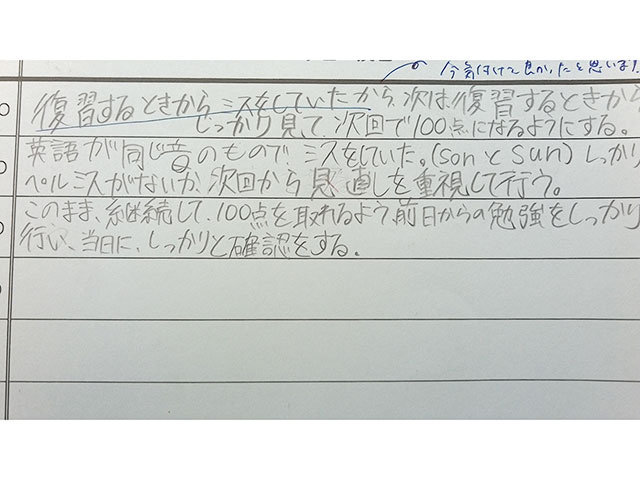 今気付けて良かったと思います
復習するときからミスをしていたから、次は復習するときから
しっかり見て、次回で100点になるようにする。
英語が同じ音のもので、ミスをしていた。(son と sun) しっかり
ペルミスがないか、次回から見直しを重視して行う。
このまま、継続して、100点を取れるよう、前日からの勉強をしっかり
行い、当日に、しっかりと確認をする。